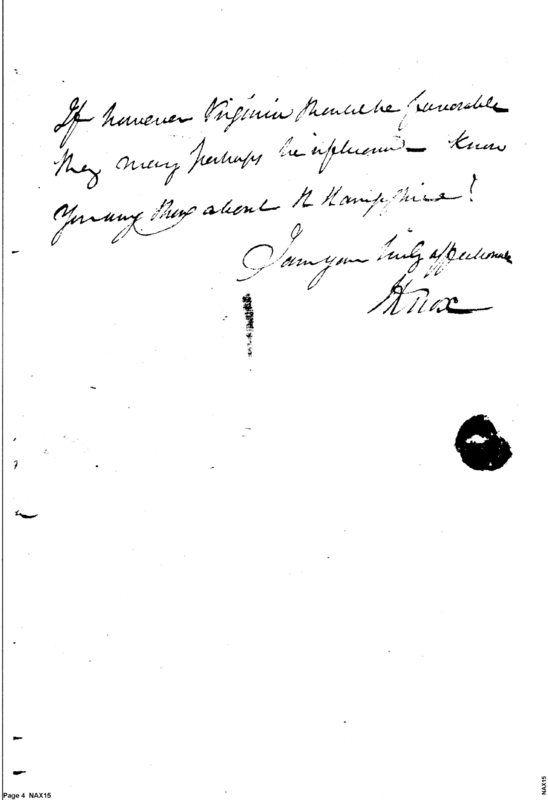 If however Virginia should be favorable
they may perhaps be influenc – Know
you any thing about N Hampshire!
I am your truly affectionate
HKnox
Page 4 NAX15
NAX15